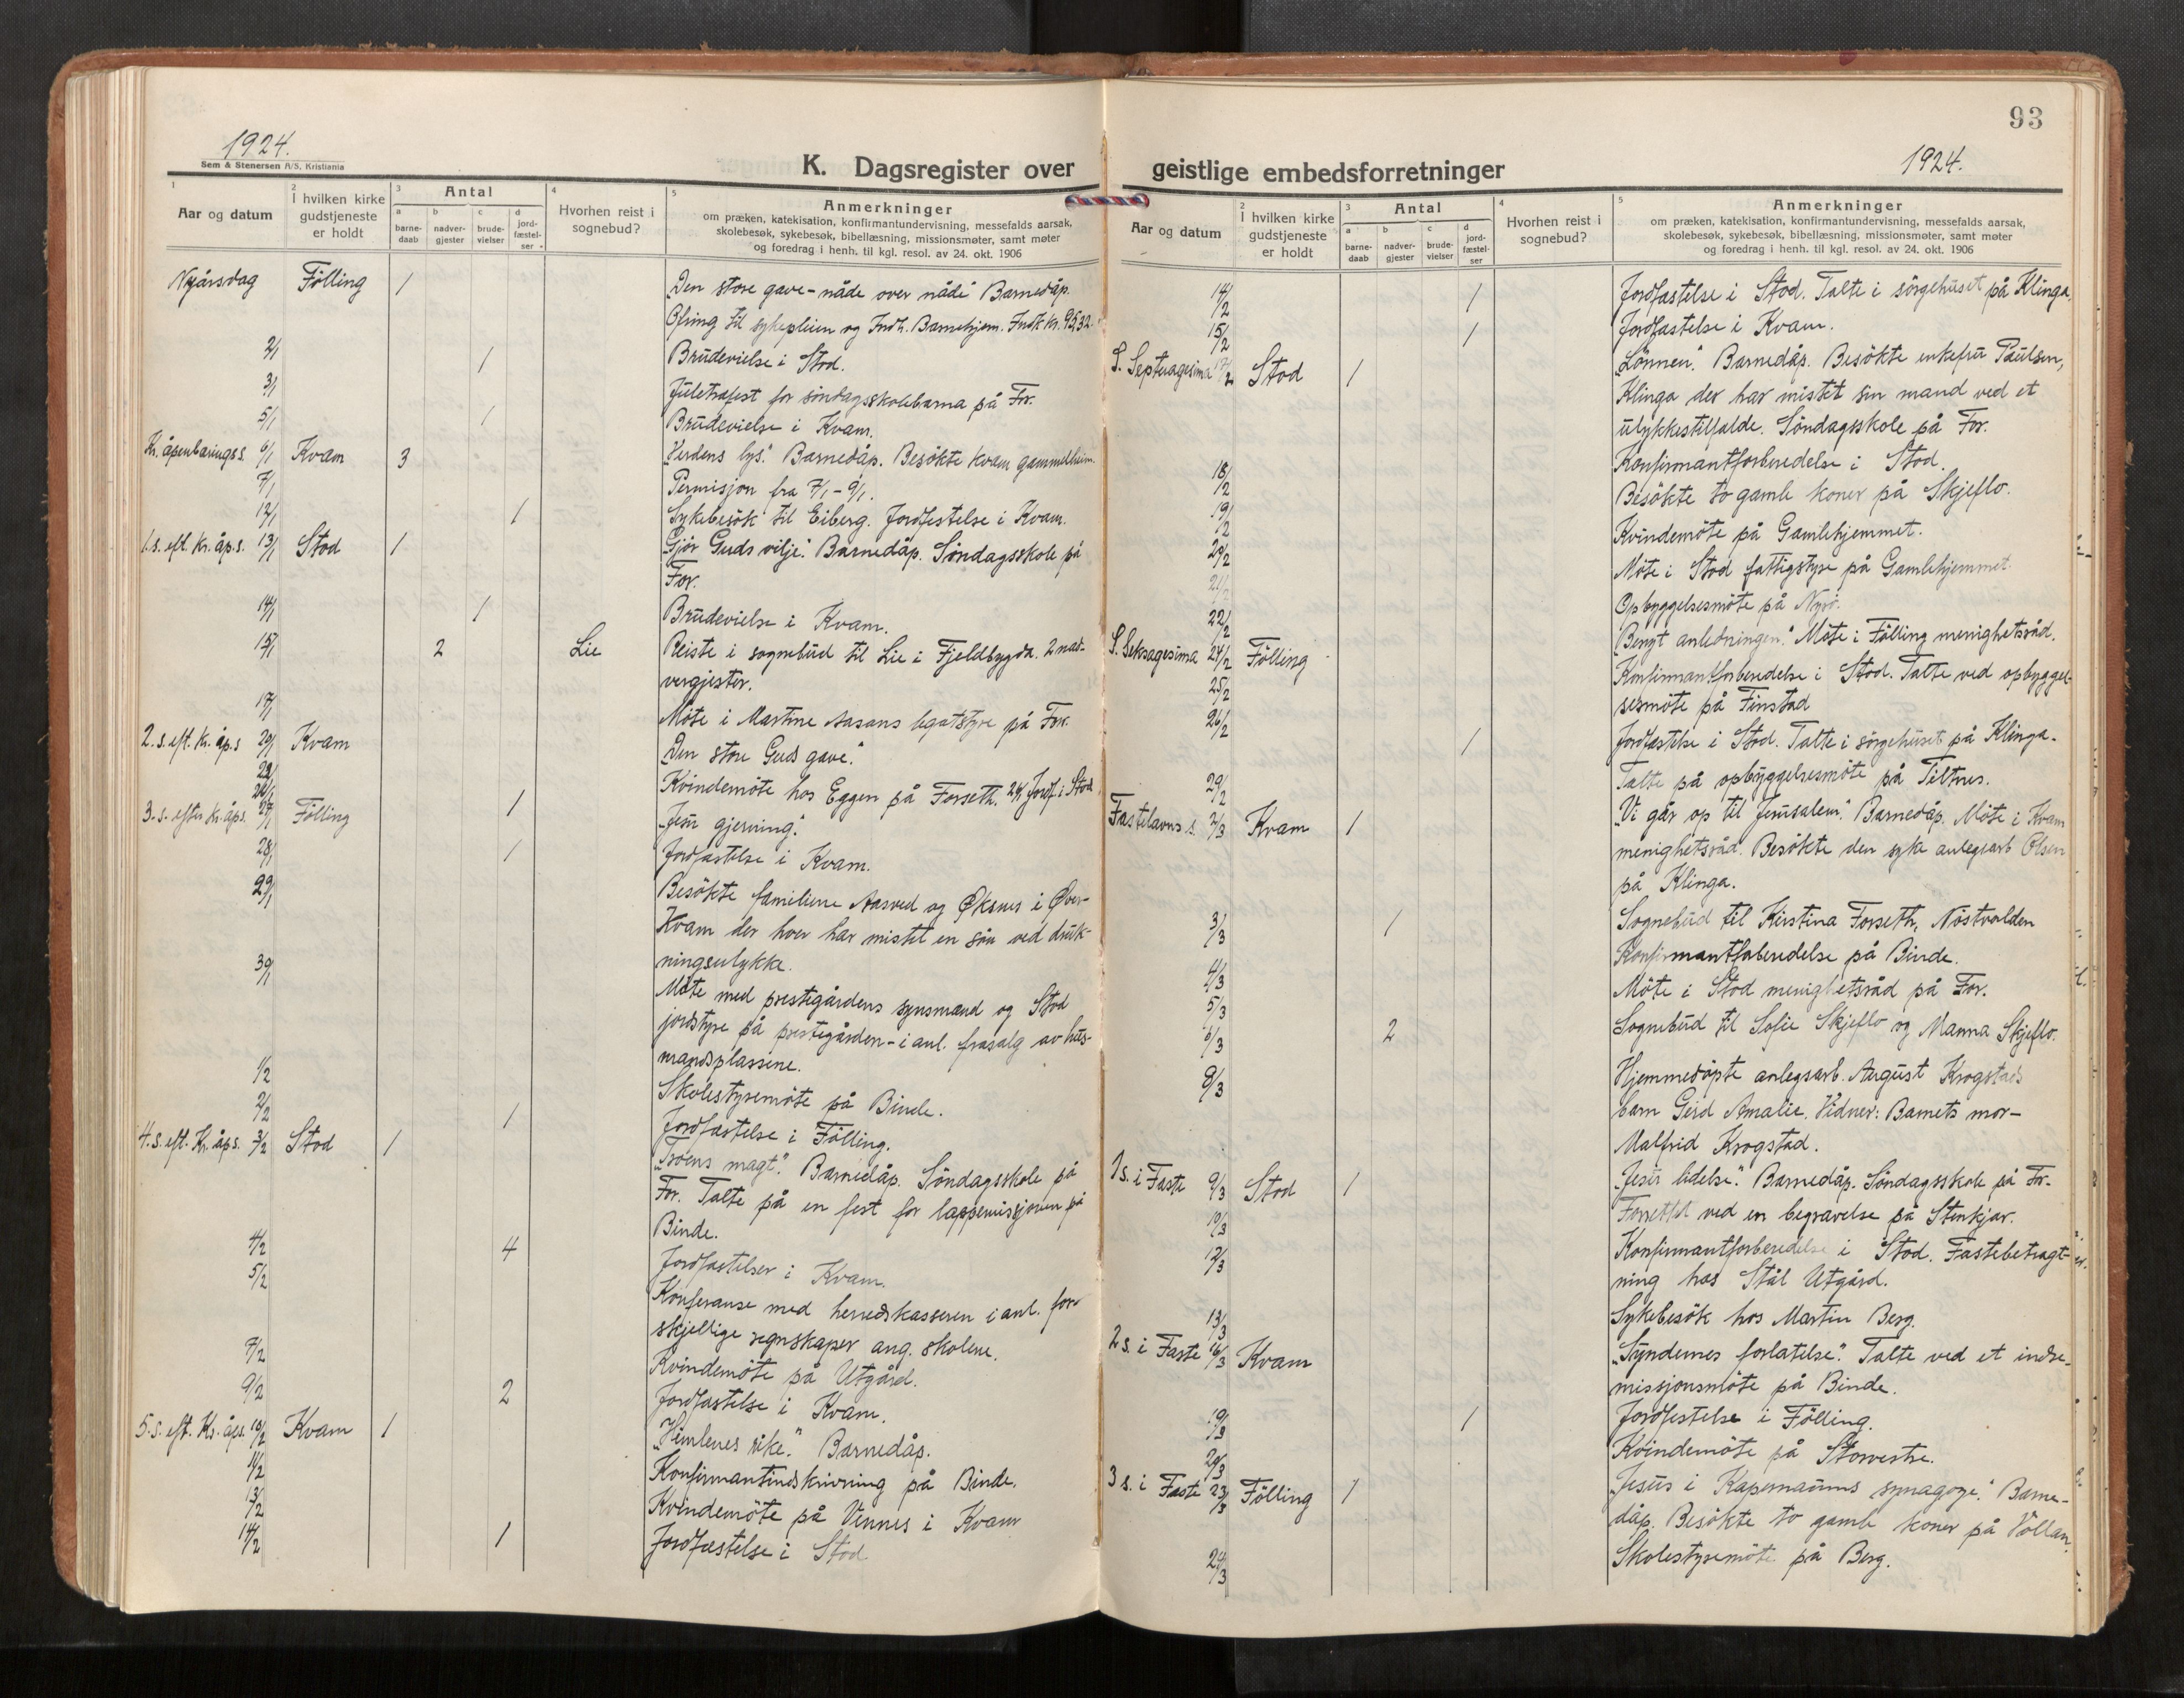 1924.
Sem & Stenersen A/S. Kristiania
K. Dagsregister over
1
Aar og datum
2
I hvilken kirke
gudstjeneste
er holdt
3
Antal
a
barne-
daab
b
nadver-
gjester
c
brude-
vielser
d
jord-
fæstel-
ser
4
Hvorhen reist i
sognebud?
5
Anmerkninger
om præken, katekisation, konfirmantundervisning, messefalds aarsak,
skolebesøk, sykebesøk, bibellæsning, missionsmøter, samt møter
og foredrag i henh. til kgl. resol. av 24. okt. 1906
Nyårsdag Fölling 1 "Den store gave - nåde over nåde" Barnedåp.
Ofring til sykepleien og Indh. Barnehjem. Indk kr. 95,32.
2/1 1 Brudevielse i Stod.
3/1 Juletrafest for söndagsskolebarna på For.
5/1 1 Brudevielse i Kvam.
Kr. åpenbaringss. 6/1 Kvam 3 "Verdens lys." Barnedåp. Besökte Kvam gammelheim.
7/1 Permisjon fra 7/1 - 9/1.
12/1 1 Sykebesök til Eiberg. Jordfestelse i Kvam.
1.s. eft. Kr. åp.s. 13/1 Stod 1 "Gjör Guds vilje." Barnedåp. Söndagsskole på
For.
14/1 1 Brudevielse i Kvam.
15/1 2 Lie Reiste i sognebud til Lie i Fjeldbygda. 2 nad-
vergjester.
17/1 Möte i Martine Aasans legatstyre på For.
2. s. eft. Kr. åp.s 20/1 Kvam "Den store Guds gave."
Kvindemöte hos Eggen på Forseth. 26/1 Jordf. i Stod
3. s. efter Kr. åps. 27/1 Fölling 1 "Jesu gjerning."
28/1 1 Jordfæstelse i Kvam.
29/1 Besökte familiene Aasved og Øksnes i Øver-
Kvam der hver har mistet en sön ved druk-
ningsulykke.
30/1 Möte med prestegårdens synsmænd og Stod
jordstyre på prestegården - i anl. frasalg av hus-
mandsplassene.
1/2 Skolestyremöte på Binde.
2/2 1 Jordfæstelse i Fölling.
4. s. eft. Kr. åps. 3/2 Stod 1 "Troens magt." Barnedåp. Söndagsskole på
For. Talte på en fest for lappemisjonen på
Binde.
4/2 4 Jordfæstelser i Kvam.
5/2 Konferanse med herredskasseren i anl. for-
skjellige regnskaper ang. skolene.
7/2 Kvindemöte på Utgård.
9/2 2 Jordfæstelse i Kvam.
5. s. eft. Kr. åps. 10/2 Kvam 1 "Himlenes rike." Barnedåp.
11/2 Konfirmantindskrivning på Binde.
13/2 Kvindemöte på Vennes i Kvam
14/2 1 Jordfæstelse i Stod
93
1924.
geistlige embedsforretninger
1
Aar og datum
2
I hvilken kirke
gudstjeneste
er holdt
3
Antal
a
barne-
daab
b
nadver-
gjester
c
brude-
vielser
d
jord-
fæstel-
ser
4
Hvorhen reist i
sognebud?
5
Anmerkninger
om præken, katekisation, konfirmantundervisning, messefalds aarsak,
skolebesøk, sykebesøk, bibellæsning, missionsmøter, samt møter
og foredrag i henh. til kgl. resol. av 24. okt. 1906
14/2 1 Jordfæstelse i Stod. Talte i sörgehuset på Klinga.
15/2 1 Jordfæstelse i Kvam.
S. Septuagesima 17/2 Stod 1 "Lönnen." Barnedåp. Besökte enkefru Paulsen,
Klinga der har mistet sin mand ved et
ulykkestilfælde. Söndagsskole på For.
18/2 Konfirmantforberedelse i Stod.
Besökte to gamle koner på Skjeflo.
19/2 Kvindemöte på Gamlehjemmet.
20/2 Möte i Stod fattigstyre på Gamlehjemmet.
21/2
22/2 Opbyggelsesmöte på
S. Seksagesima 24/2 Fölling "Benyt anledningen." Möte i Fölling menighetsråd.
25/2 Konfirmantforberedelse i Stod. Talte ved opbyggel-
sesmöte på Finstad
26/2 1 Jordfæstelse i Stod. Talte i sörgehuset på Klinga.
29/2 Talte på opbyggelsesmöte på Tiltnes.
Fastelavns s. 2/3 Kvam 1 "Vi går op til Jerusalem." Barnedåp. Möte i Kvam
menighetsråd. Besökte den syke anlegsarb Olsen
på Klinga.
3/3 1 Sognebud til Kirstina Forseth, Nöstvolden
Konfirmantforberedelse på Binde.
4/3 Möte i Stod menighetsråd på For.
5/3
6/3 2 Sognebud til Sofie Skjeflo og Manna Skjeflo.
8/3 Hjemmedöpte anlegsarb. August Krogstads
barn Gerd Amalie. Vidner: Barnets mor -
Malfrid Krogstad.
1 s. i Faste 9/3 Stod 1 "Jesu lidelse." Barnedåp. Söndagsskole på For.
10/3 Forrettet ved en begravelse på Stenkjær.
12/3 Konfirmantforberedelse i Stod. Fastebetragt-
ning hos Stål Utgård.
13/3 Sykebesök hos Martin Berg.
2 s. i Faste 16/3 Kvam "Syndernes forlatelse." Talte ved et indre-
missjonsmöte på Binde.
19/3 1 Jordfestelse i Fölling.
20/3 Kvindemöte på Storvestre.
3 s. i Faste 23/3 Fölling 1 "Jesus i Kapernaums synagoge." Barne-
dåp. Besökte to gamle koner på Vollan.
24/3 Skolestyremöte på Berg.